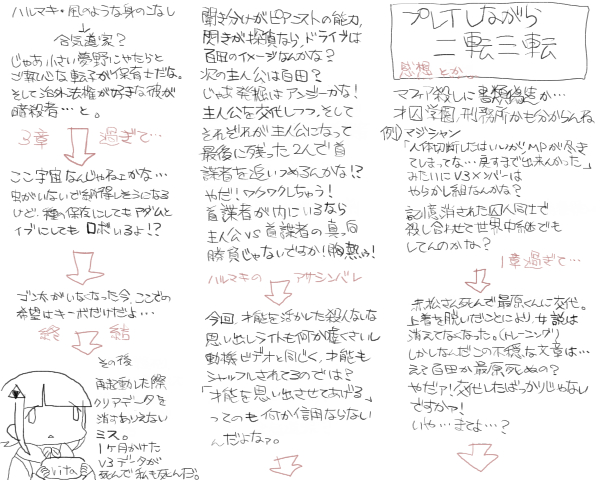 プレイしながら
二転三転
感想 とか。
マフィア殺しに
才囚学園、刑務所かも分からんね
例)マジシャン
「人体切断したはいいが、MPが尽き
てしまってな…戻すまで出来んかった」
みたいにV3メンバーは
やらかし組なんかな?
記憶消された囚人同士で
殺し合わせて世界中継でも
してんのかな?
1章過ぎて…
赤松さん死んで最原くんに交代。
上着を脱いだことにより女説は
消えてなくなった。(トレーニング)
しかしなんだこの不穏な文章は…
えっ百田か最原死ぬの?
やだァ!交代したばっかりじゃない
ですかァ!
いや…まてよ…?
聞き分けがピアニストの能力,
閃きが探偵なら,ドライブは
百田のイメージなんかな?
次の主人公は百田?
じゃあ発掘はアンジーかな!
主人公を交代しつつ,そして
それぞれが主人公になって
最後に残った2人で首
謀者を追いつめるんかな!?
やだ!ワクワクしちゃう!
首謀者が内にいるなら
主人公VS首謀者の真っ向
勝負じゃないですか!胸熱ゥ!
ハルマキの アサシンバレ
今回,才能を活かした殺人ないな
思い出しライトも何か嘘くさいし
動機ビデオと同じく,才能も
シャッフルされてるのでは?
「才能を思い出させてあげる」
ってのも何か信用ならない
んだよなァ。
ハルマキ・風のような身のこなし
↓
合気道家?
じゃあ小さい夢野にやたらと
ご執心な転子が保育士だな。
そして治外法権が好きな彼が
暗殺者…と。
3章 過ぎて…
ここ宇宙なんじゃねぇかな…
虫がいないで納得しそうになる
けど、種の保存にしてもアダムと
イブにしてもロボいるよ!?
ゴン太がいなくなった今,ここでの
希望はキーボだけだよ…
終 結
その後
再起動した際
クリアデータを
消すありえない
ミス。
1ヶ月かけた
V3データが
死んで私も死んだ。
vita